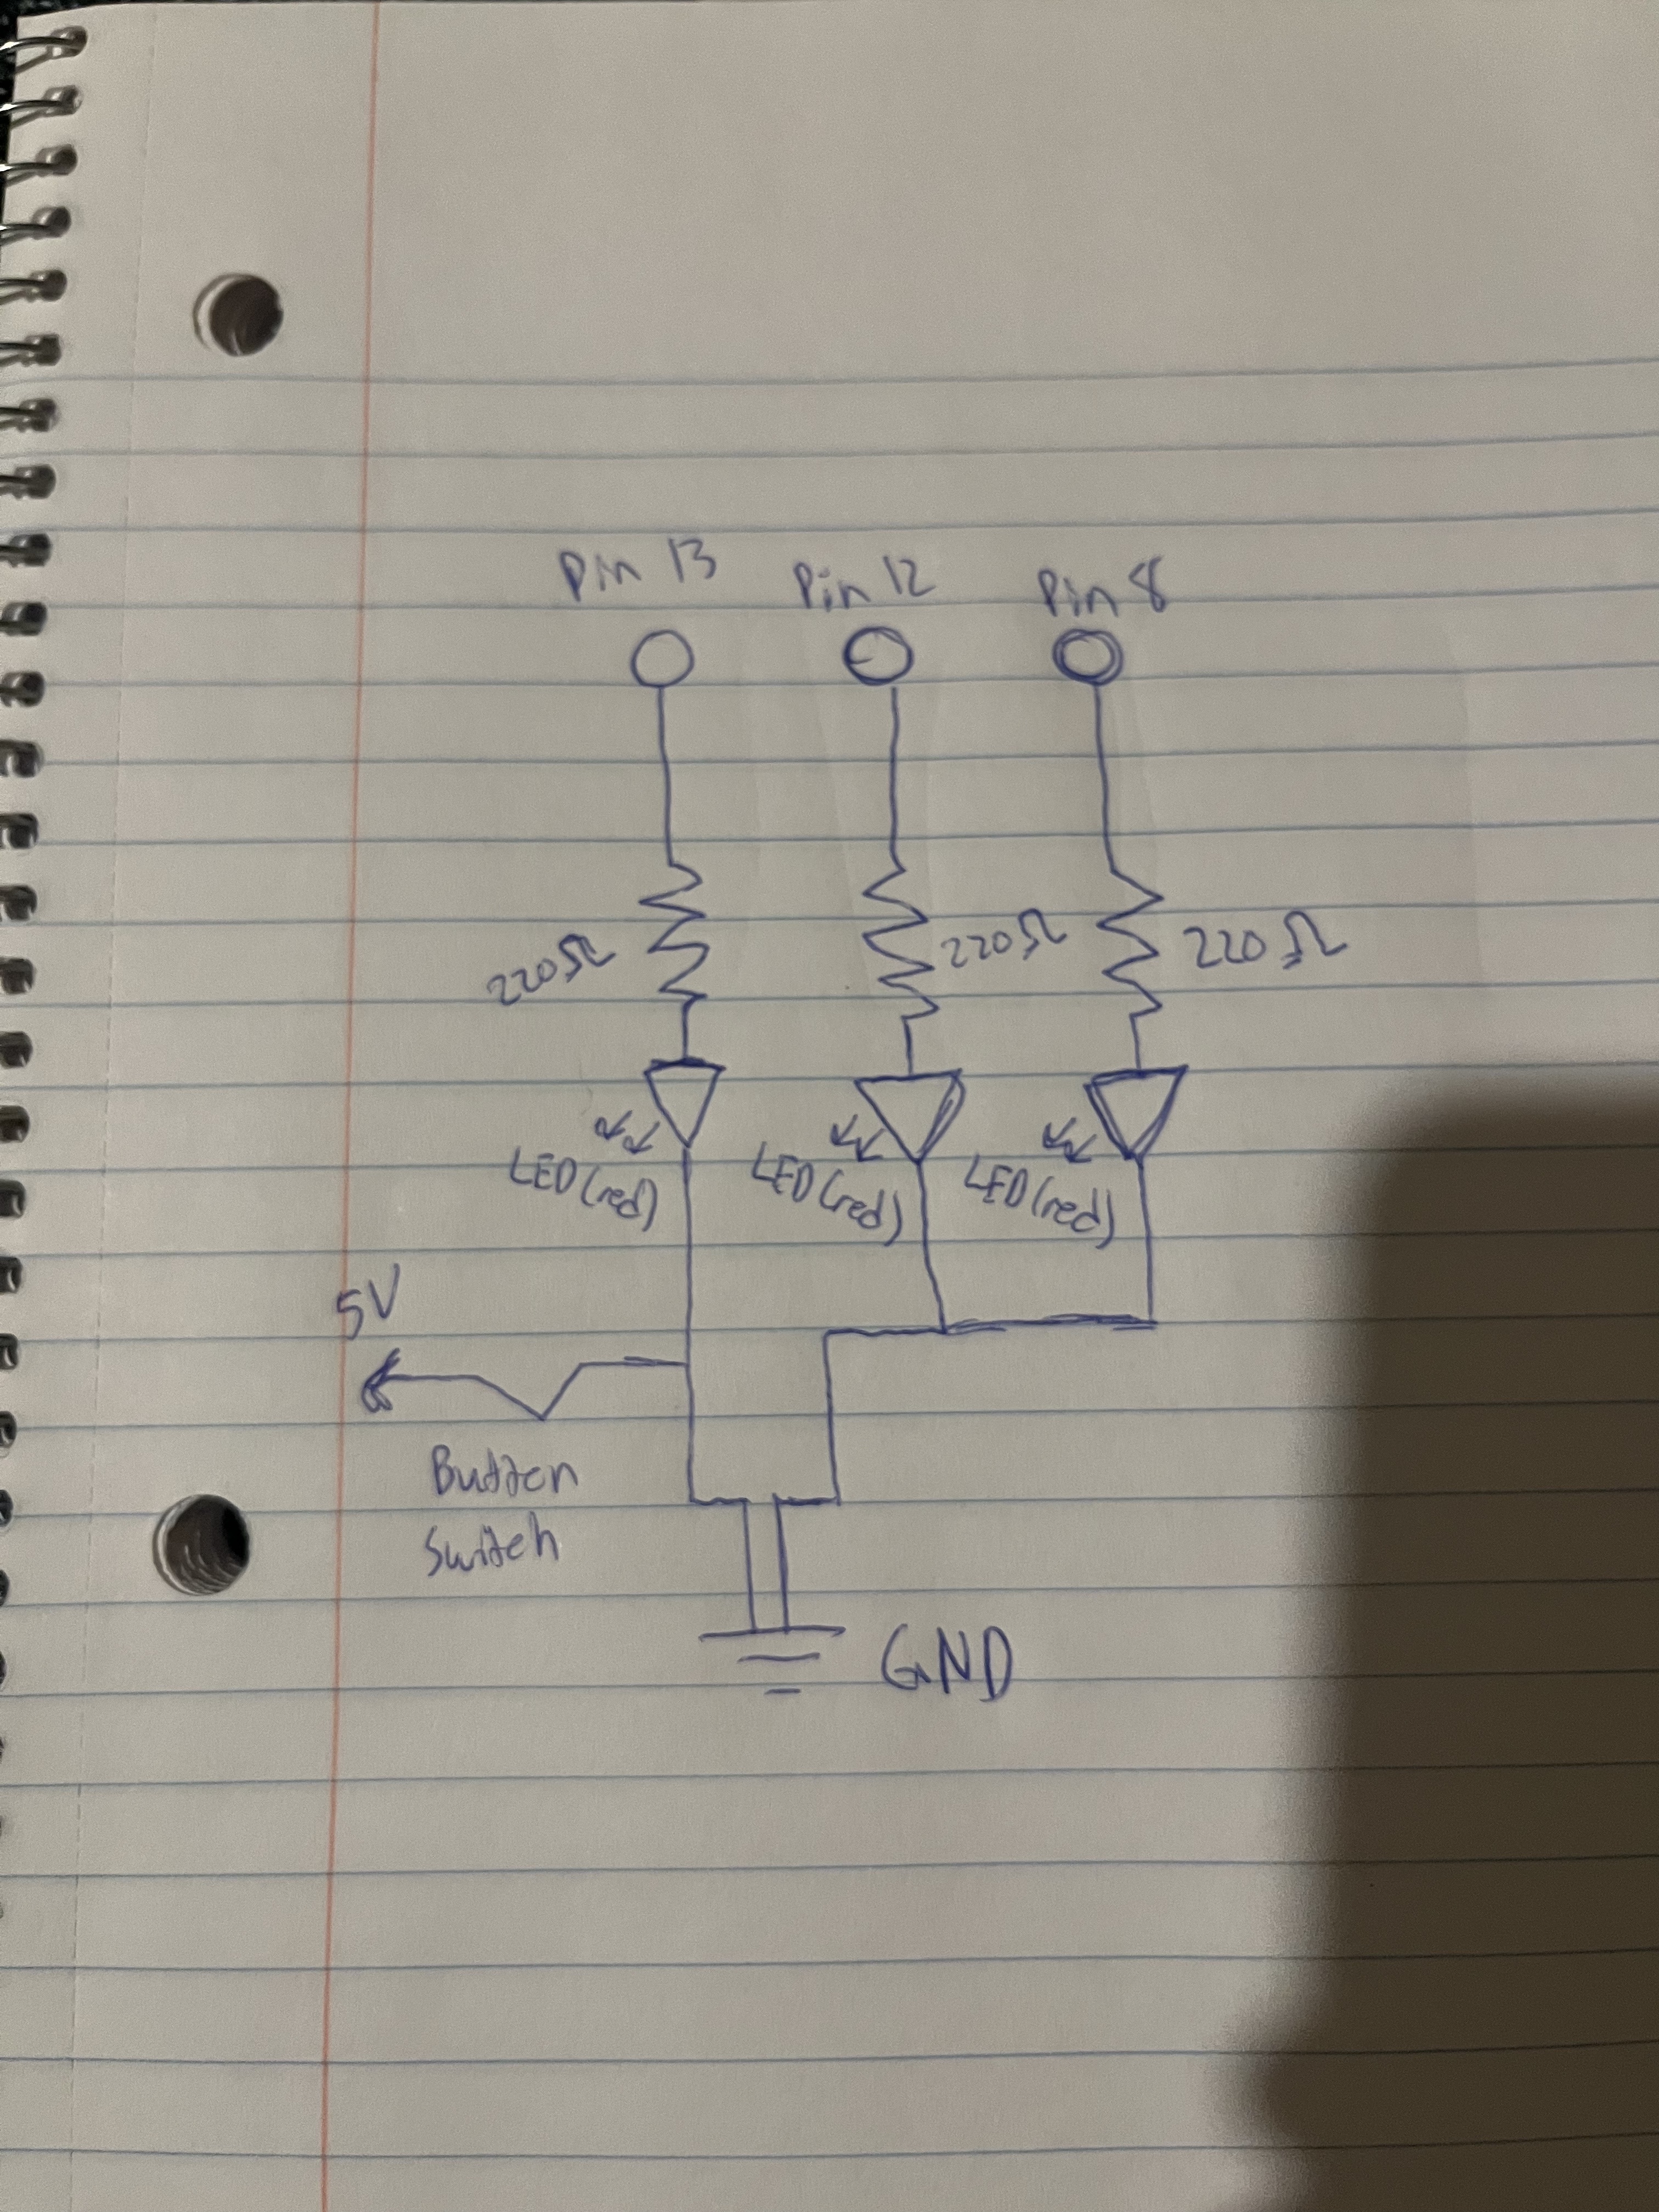 Pin 13 Pin 12 Pin 8
220Ω 220Ω 220Ω
LED (red) LED (red) LED (red)
5V
Button
Switch
GND